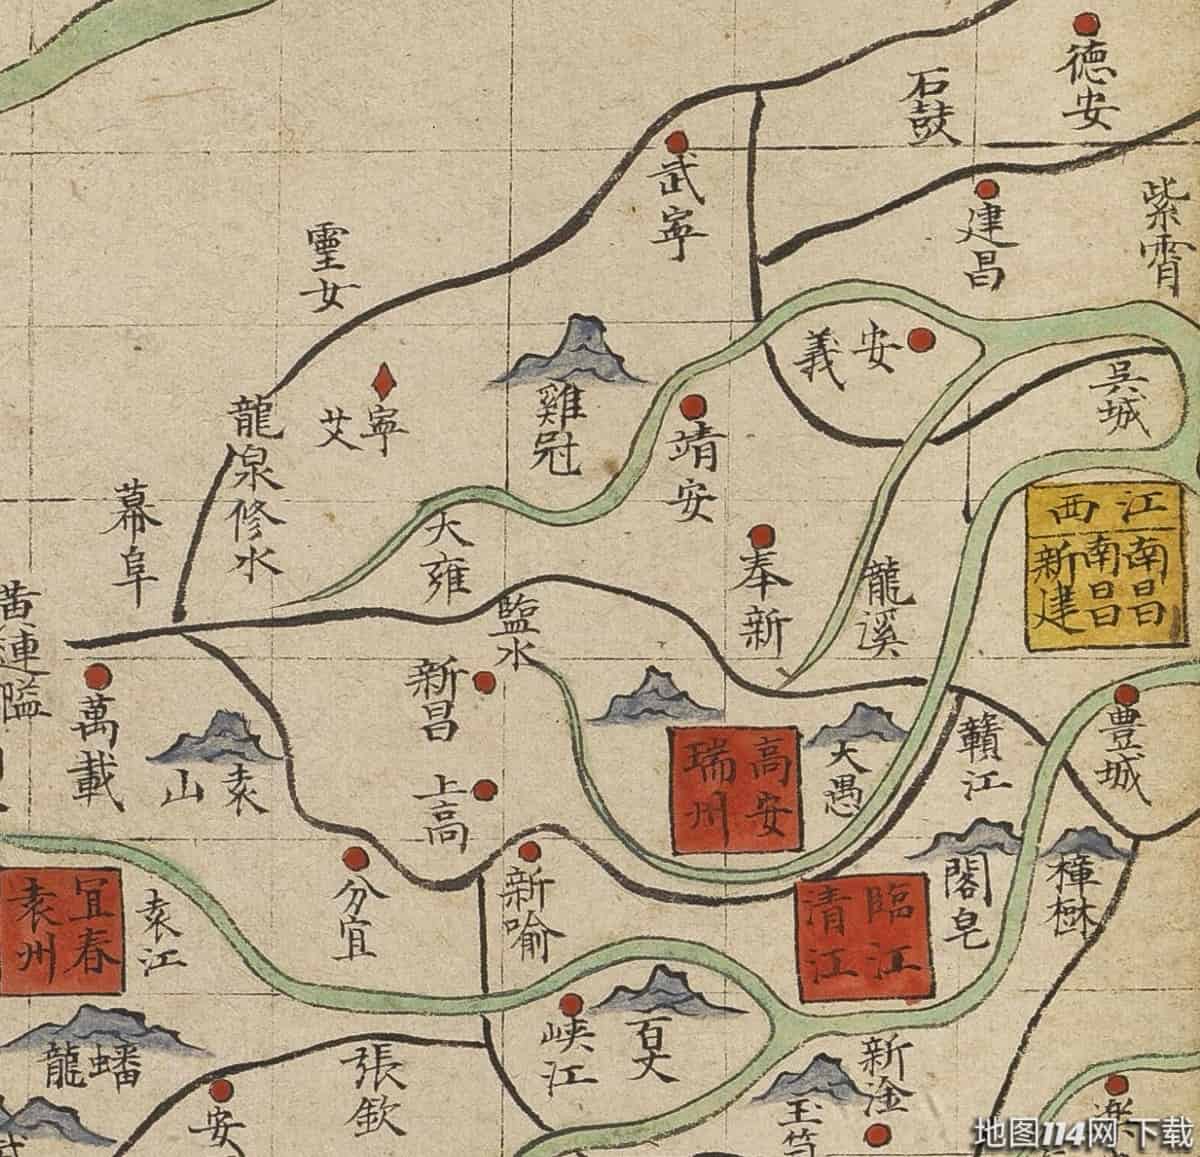 德安
石鼓
武寧
建昌
紫霄
靈女
安義
吳城
雞冠
寧
艾
靖安
龍泉修水
幕阜
大雍
奉新
龍溪
江西
南昌
南昌
新建
黃連隘
萬載
袁山
鹽水
新昌
上高
高安
瑞州
大愚
贛江
豐城
分宜
新喻
閣皂
樟樹
宜春
袁州
袁江
臨江
清江
蟠龍
張欽
峽江
百丈
新淦
安
地图114网 下载